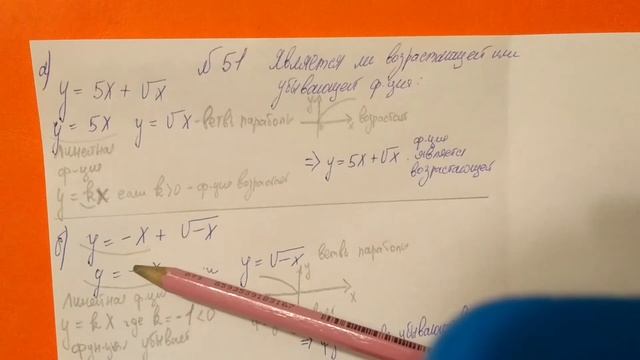 а) №51 Является ли возрастающей или
убывающей ф-ция:
y = 5x + √x
y = 5x y = √x - ветвь параболы y x возрастает
Линейная
ф-ция
y = kx если k>0 - ф-ция возрастает
=> y = 5x + √x ф-ция
является
возрастающей
б) y = -x + √-x
y = -x y = √-x ветвь параболы
y x
Линейная ф-ция
y = kx где k = -1 < 0
функция убывает